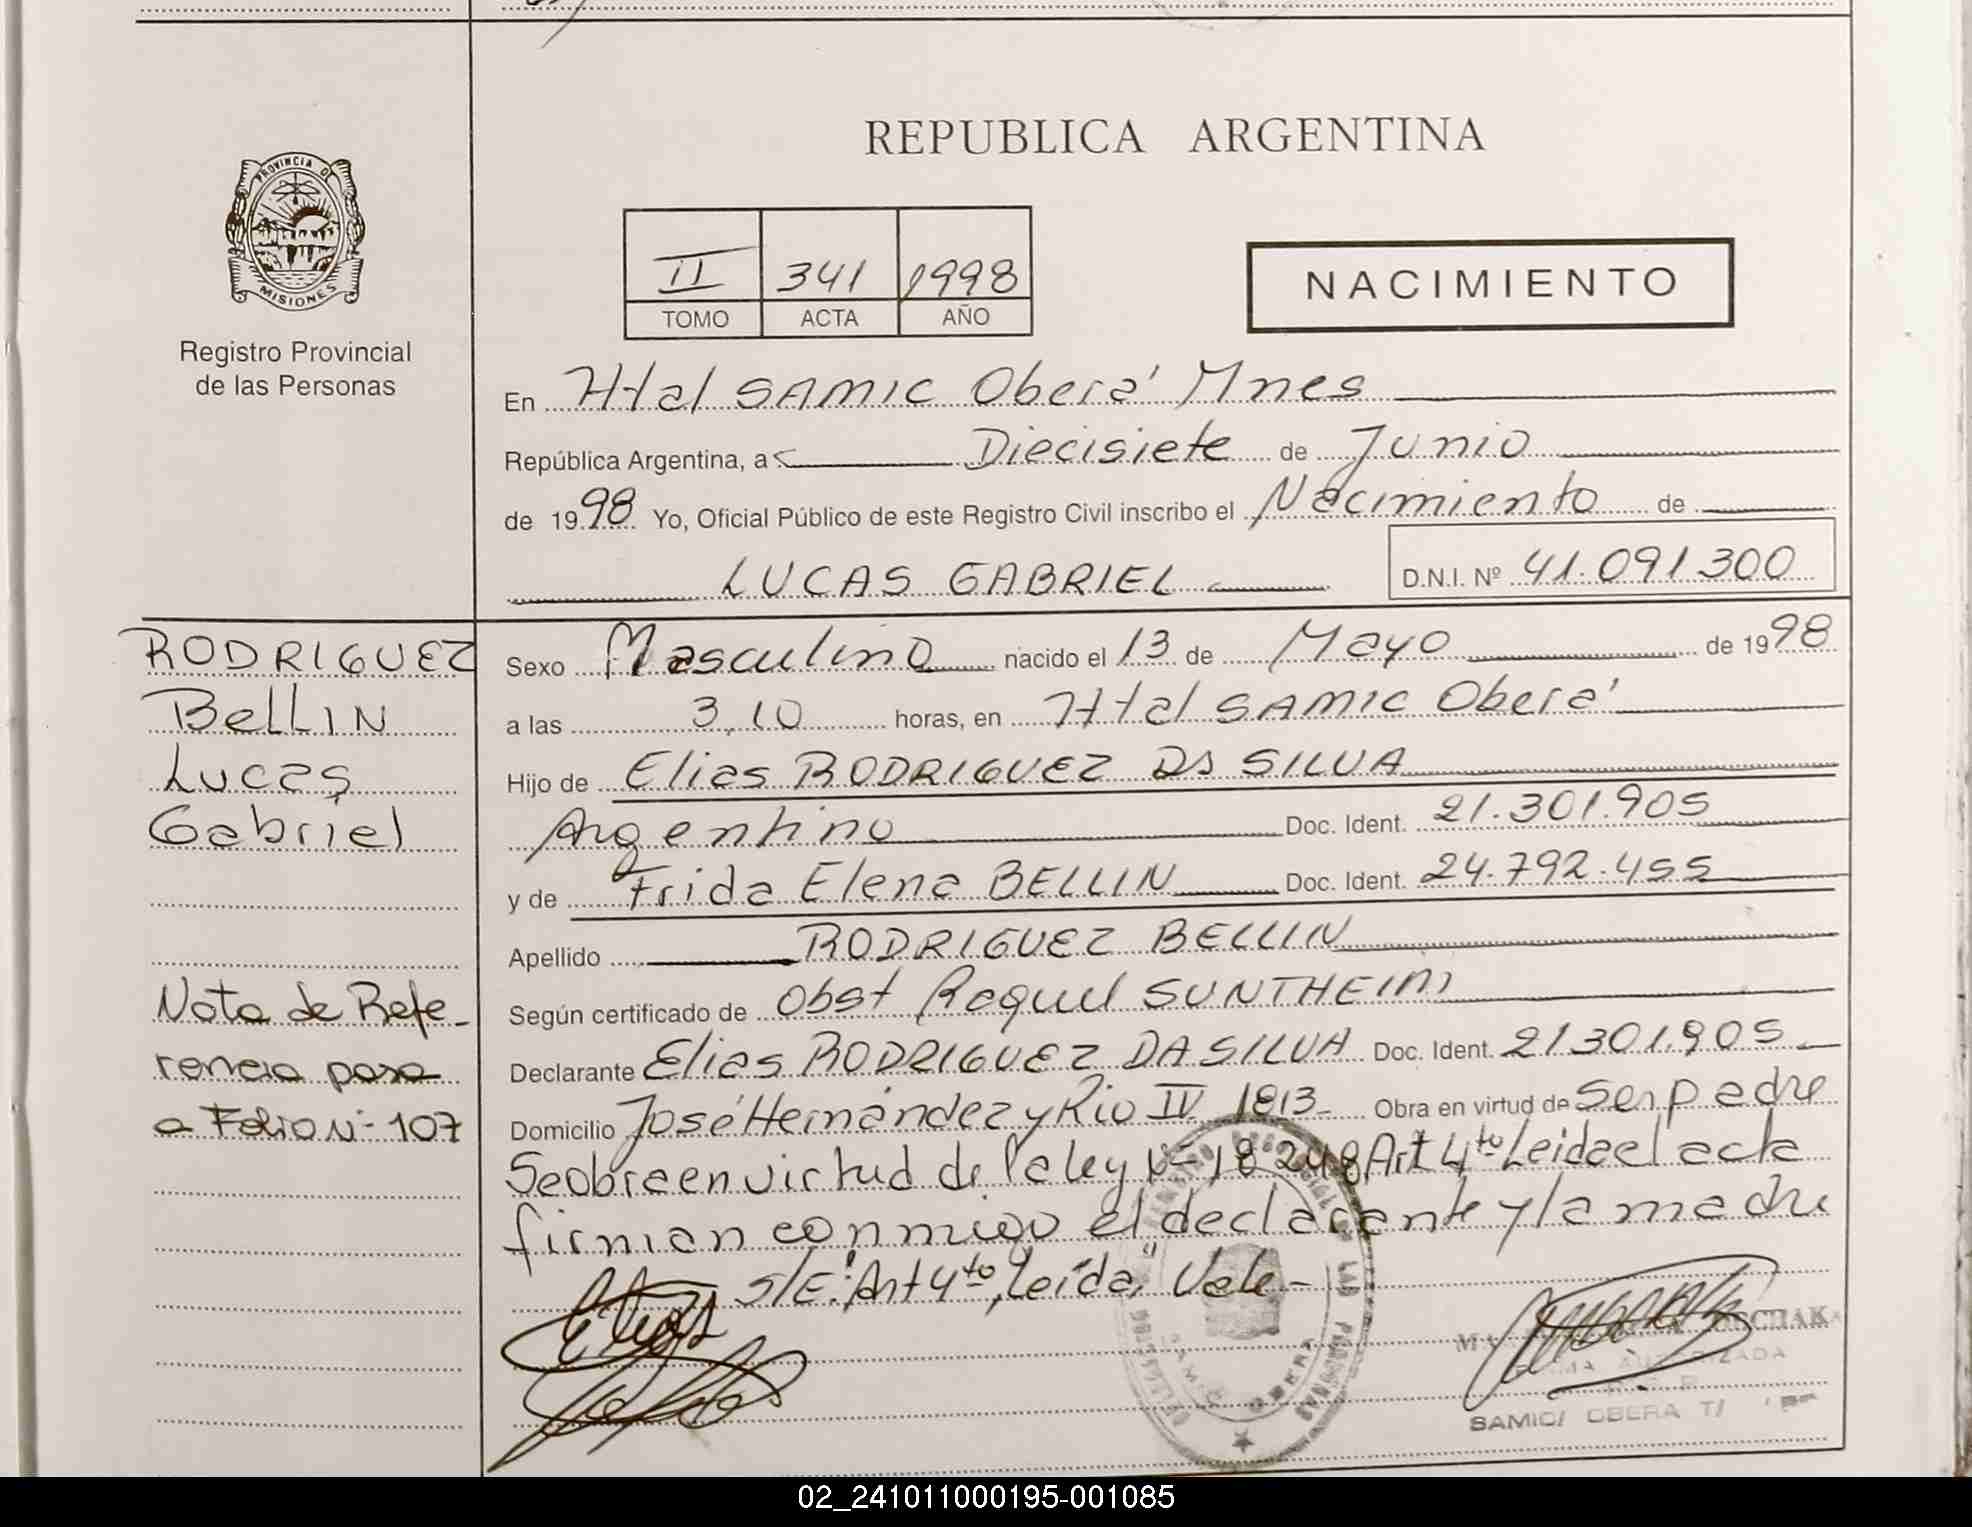 REPUBLICA ARGENTINA
PROVINCIA DE
MISIONES
Registro Provincial
de las Personas
II 341 1998
TOMO ACTA AÑO
NACIMIENTO
En Htal SAMIC Oberá Mnes
República Argentina, a Diecisiete de Junio
de 1998 Yo, Oficial Público de este Registro Civil inscribo el Nacimiento de
LUCAS GABRIEL D.N.I. Nº 41.091.300
RODRIGUEZ
BelLIN
Lucas
Gabriel
Nota de Refe-
rencia pasa
a Folio Nº 107
Sexo Masculino nacido el 13 de Mayo de 1998
a las 3,10 horas, en Htal SAMIC Oberá
Hijo de Elias RODRIGUEZ DA SILVA
Argentino Doc. Ident. 21.301.905
y de Frida Elena BELLIN Doc. Ident. 24.792.455
Apellido RODRIGUEZ BELLIN
Según certificado de Obst Raquel SUNTHEIM
Declarante Elias RODRIGUEZ DA SILVA Doc. Ident. 21301.905
Domicilio José Hernández y Rio IV 1813 Obra en virtud de Ser padre
Se obra en virtud de la ley Nº 18248 Art 4to Leida el acta
firman conmigo el declarante y la madre
S/E: "Art 4to, Leída, Vale -
AUTORIZADA
SAMIC/ OBERA
02_241011000195-001085